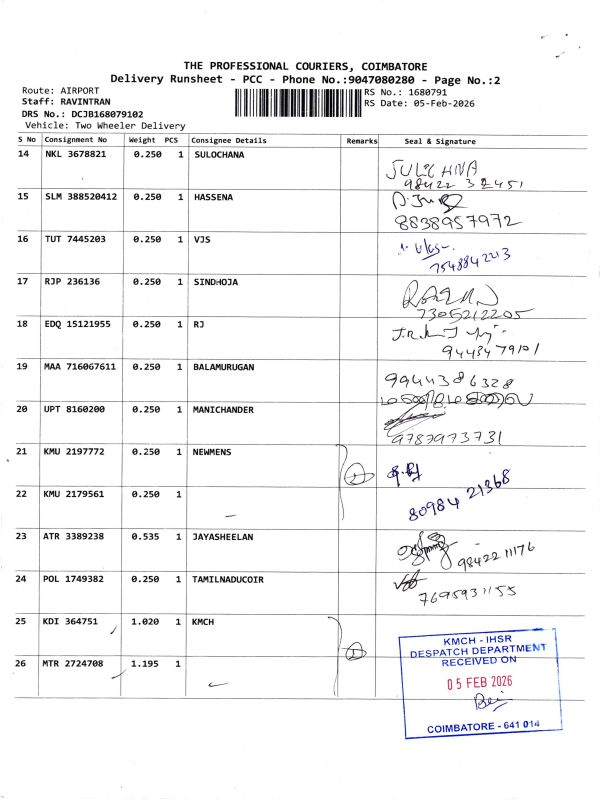 THE PROFESSIONAL COURIERS, COIMBATORE
Delivery Runsheet - PCC - Phone No.:9047080280 - Page No.:2
Route: AIRPORT
Staff: RAVINTRAN
DRS No.: DCJB168079102
Vehicle: Two Wheeler Delivery
RS No.: 1680791
RS Date: 05-Feb-2026
S No Consignment No Weight PCS Consignee Details Remarks Seal & Signature
14 NKL 3678821 0.250 1 SULOCHANA
98422 32451
15 SLM 388520412 0.250 1 HASSENA
8838957972
16 TUT 7445203 0.250 1 VJS
7548842213
17 RJP 236136 0.250 1 SINDHOJA
7305212205
18 EDQ 15121955 0.250 1 RJ
9443479101
19 MAA 716067611 0.250 1 BALAMURUGAN
9944386328
20 UPT 8160200 0.250 1 MANICHANDER
9787973731
21 KMU 2197772 0.250 1 NEWMENS
2
22 KMU 2179561 0.250 1
80984 21368
23 ATR 3389238 0.535 1 JAYASHEELAN
9842211176
24 POL 1749382 0.250 1 TAMILNADUCOIR
7695931155
25 KDI 364751 1.020 1 KMCH
2
26 MTR 2724708 1.195 1
KMCH - IHSR
DESPATCH DEPARTMENT
RECEIVED ON
05 FEB 2026
COIMBATORE - 641 014